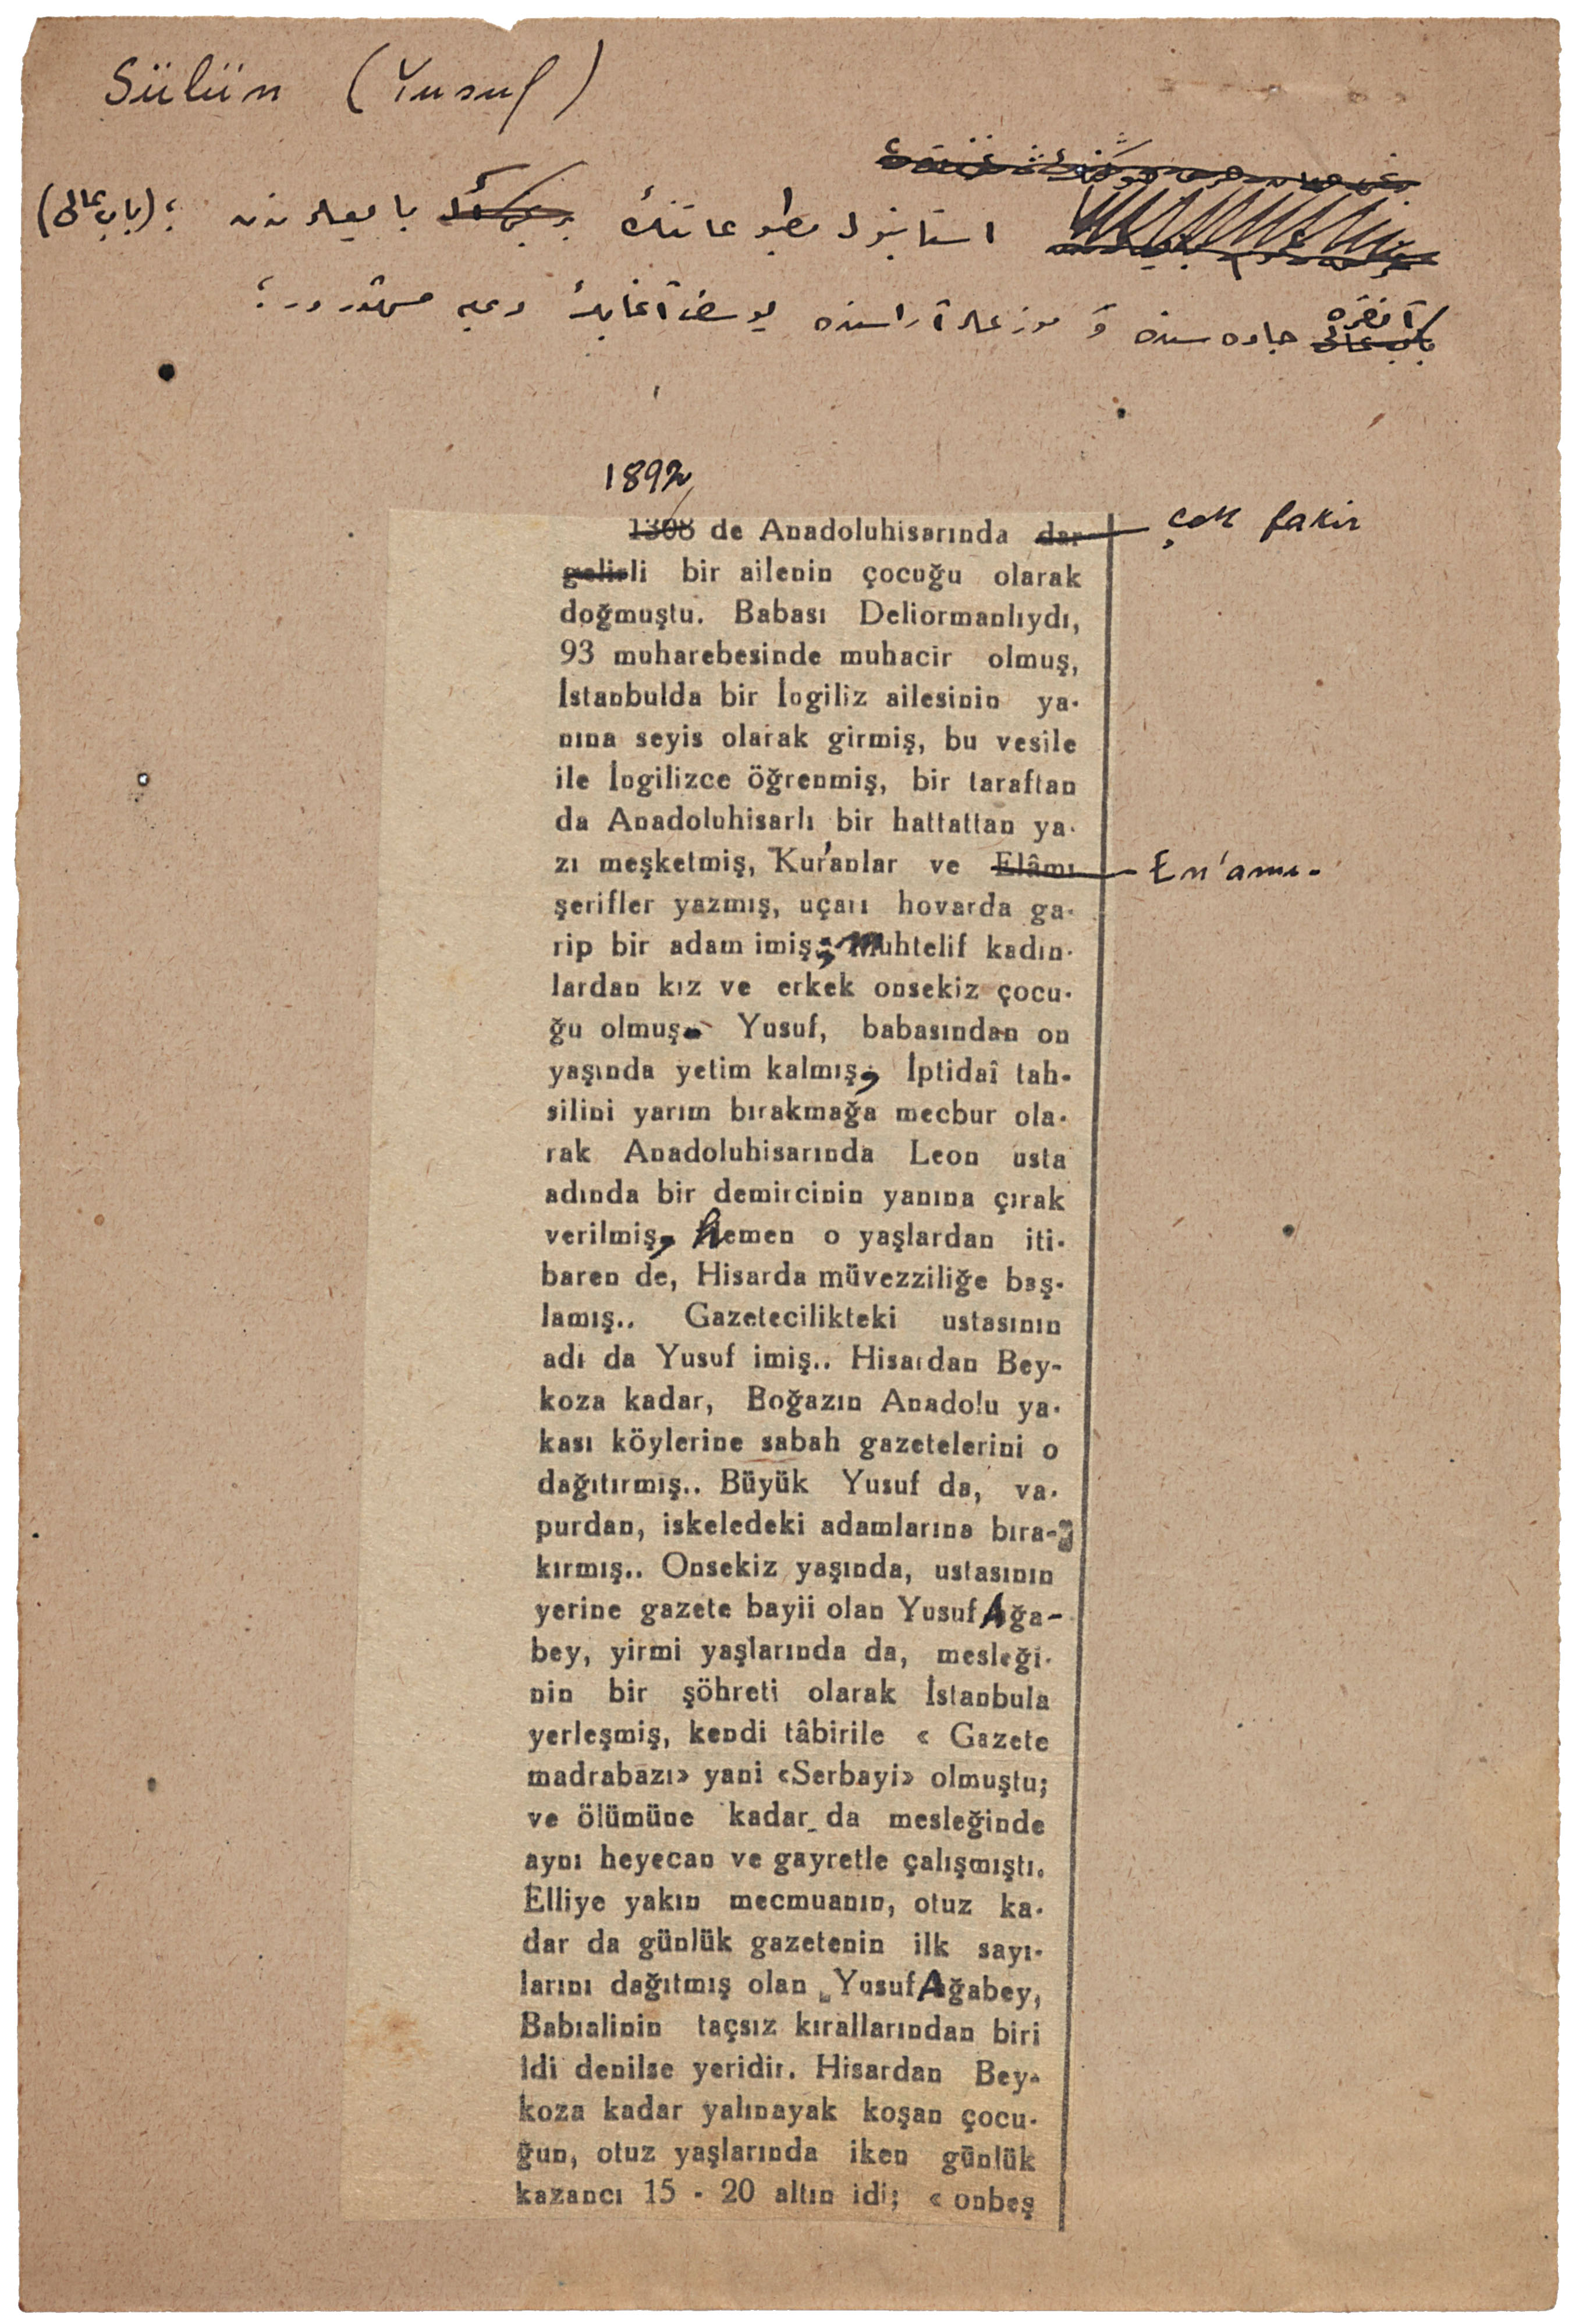 Sülün (Yusuf)
استانبول مطبوعاتنك بايعلرندن ؛ (باب عالى)
آنقره جاده سنده و موزعلر آراسنده يوسف آغابك ديمه مشهوردر ؛
1892
1308 de Anadoluhisarında dar- çok fakir
gelirli bir ailenin çocuğu olarak
doğmuştu. Babası Deliormanlıydı,
93 muharebesinde muhacir olmuş,
İstanbulda bir İngiliz ailesinin ya-
nına seyis olarak girmiş, bu vesile
ile İngilizce öğrenmiş, bir taraftan
da Anadoluhisarlı bir hattattan ya-
zı meşketmiş, Kur'anlar ve Elâmı En'amı-
şerifler yazmış, uçarı hovarda ga-
rip bir adam imiş; muhtelif kadın-
lardan kız ve erkek onsekiz çocu-
ğu olmuş. Yusuf, babasından on
yaşında yetim kalmış, İptidaî tah-
silini yarım bırakmağa mecbur ola-
rak Anadoluhisarında Leon usta
adında bir demircinin yanına çırak
verilmiş, hemen o yaşlardan iti-
baren de, Hisarda müvezziliğe baş-
lamış.. Gazetecilikteki ustasının
adı da Yusuf imiş.. Hisardan Bey-
koza kadar, Boğazın Anadolu ya-
kası köylerine sabah gazetelerini o
dağıtırmış.. Büyük Yusuf da, va-
purdan, iskeledeki adamlarına bıra-
kırmış.. Onsekiz yaşında, ustasının
yerine gazete bayii olan Yusuf Ağa-
bey, yirmi yaşlarında da, mesleği-
nin bir şöhreti olarak İstanbula
yerleşmiş, kendi tâbirile « Gazete
madrabazı» yani «Serbayi» olmuştu;
ve ölümüne kadar da mesleğinde
aynı heyecan ve gayretle çalışmıştı.
Elliye yakın mecmuanın, otuz ka-
dar da günlük gazetenin ilk sayı-
larını dağıtmış olan Yusuf Ağabey,
Babıalinin taçsız kırallarından biri
idi denilse yeridir. Hisardan Bey-
koza kadar yalınayak koşan çocu-
ğun, otuz yaşlarında iken günlük
kazancı 15 - 20 altın idi; « onbeş